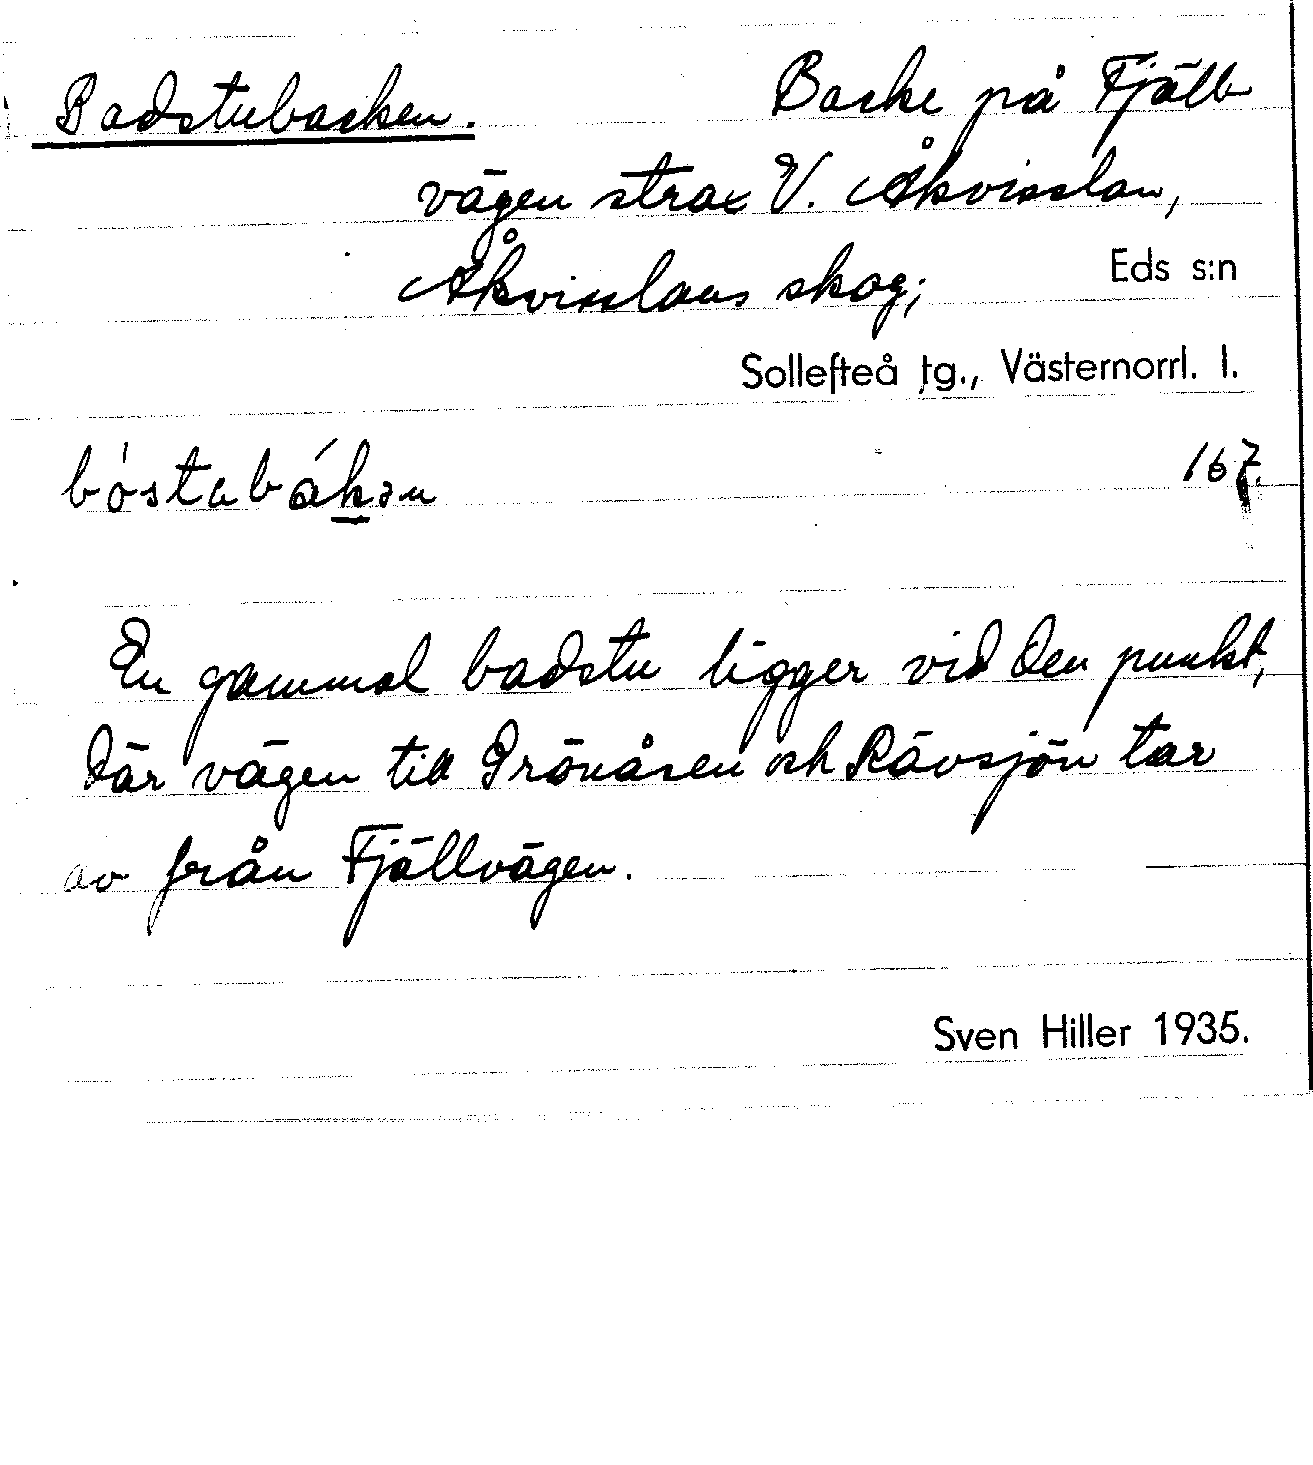 Badstubacken. Backe på Fjäll-
vägen strax V. Åkvisslan,
Åkvisslans skog; Eds s:n
Sollefteå tg., Västernorrl. l.
bóstabákən 167.
En gammal badstu ligger vid den punkt,
där vägen till Grönåsen och Rävsjön tar
av från Fjällvägen.
Sven Hiller 1935.